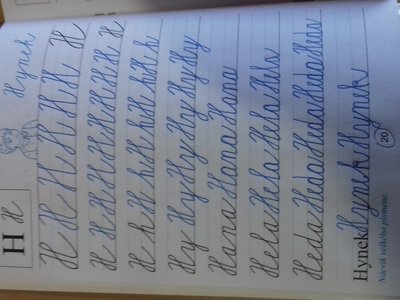 H H
Hynek
H H H H H H H
H H H H H H H H
H h H h H h H h h
Hy Hy Hy Hy Hy
Hana Hana Hana
Hela Hela Hela Hela
Heda Heda Heda Heda Heda
Hynek Hynek Hynek
Nácvik velkého písmene
20